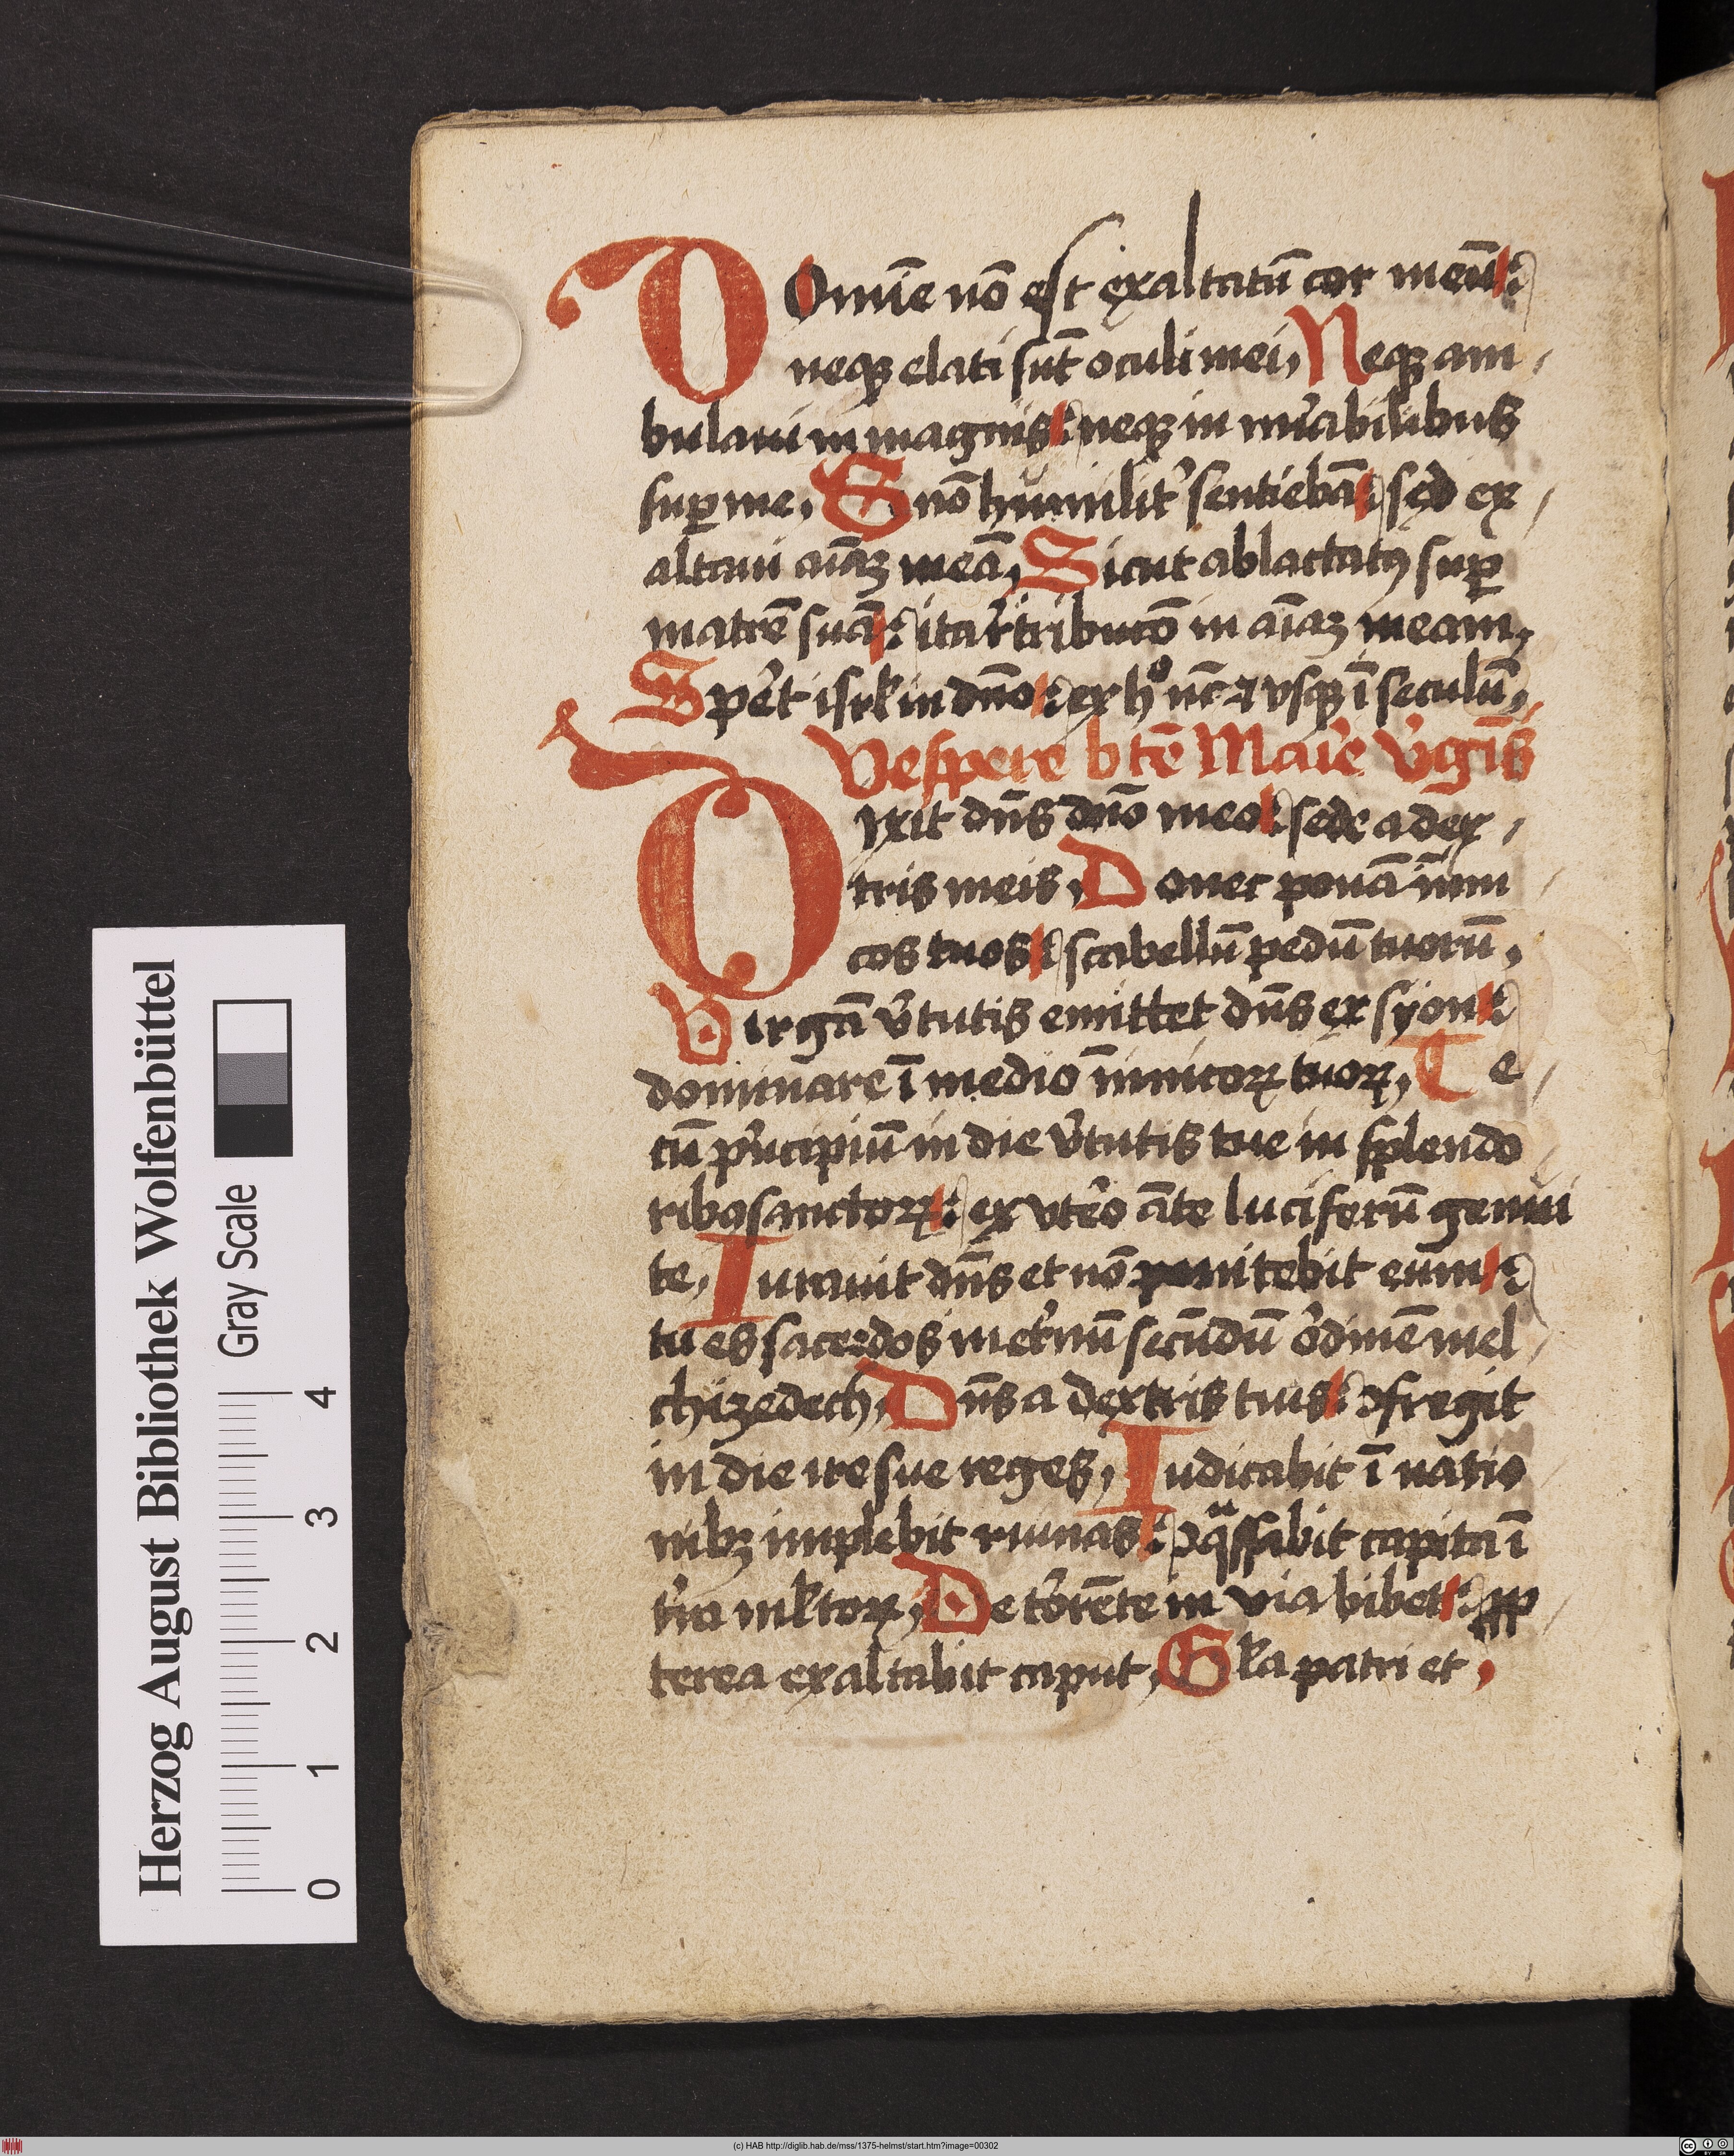 DOmīe nō est exaltatū cor meū:
neqꝫ elati sūt oculi mei, Neqꝫ am
bulaui in magnis: neqꝫ in mirabilibus
suꝑ me, Si nō humilit᷑ sentiebā: sed ex
altaui aīaꝫ meā, Sicut ablactatꝰ suꝑ
matrē suā: ita r᷑tribucō in aīaꝫ meam,
Sper᷑t isrl in dn̄o: ex hͦ nc̄ ⁊ vsqꝫ ī seculū,
Vespere bt̄e Maie v᷑gīs
Dixit dn̄s dn̄o meo: sede a dex
tris meis, Donec ponā inimi
cos tuos: scabellū pedū tuorū,
Virgā v᷑tutis emittet dn̄s ex syon:
dominare ī medio īnimicoꝝ tuoꝝ, Te
cū prīcipiū in die v᷑tutis tue in splendo
ribꝰ sanctoꝝ: ex vtero āte luciferū genui
te, Iurauit dn̄s et nō penitebit eum:
tu es sacerdos in et᷑nū secūdū ordinē mel
chizedech, Dn̄s a dextris tuis: ꝯfregit
in die ire sue reges, Iudicabit ī natio
nibꝫ implebit ruinas: ꝯqͣssabit capita ī
t᷑ra ml̄toꝝ, De torrēte in via bibet: ꝓp
terea exaltabit caput, Gl̄a patri et,
Herzog August Bibliothek Wolfenbüttel
Gray Scale
0 1 2 3 4
(c) HAB http://diglib.hab.de/mss/1375-helmst/start.htm?image=00302